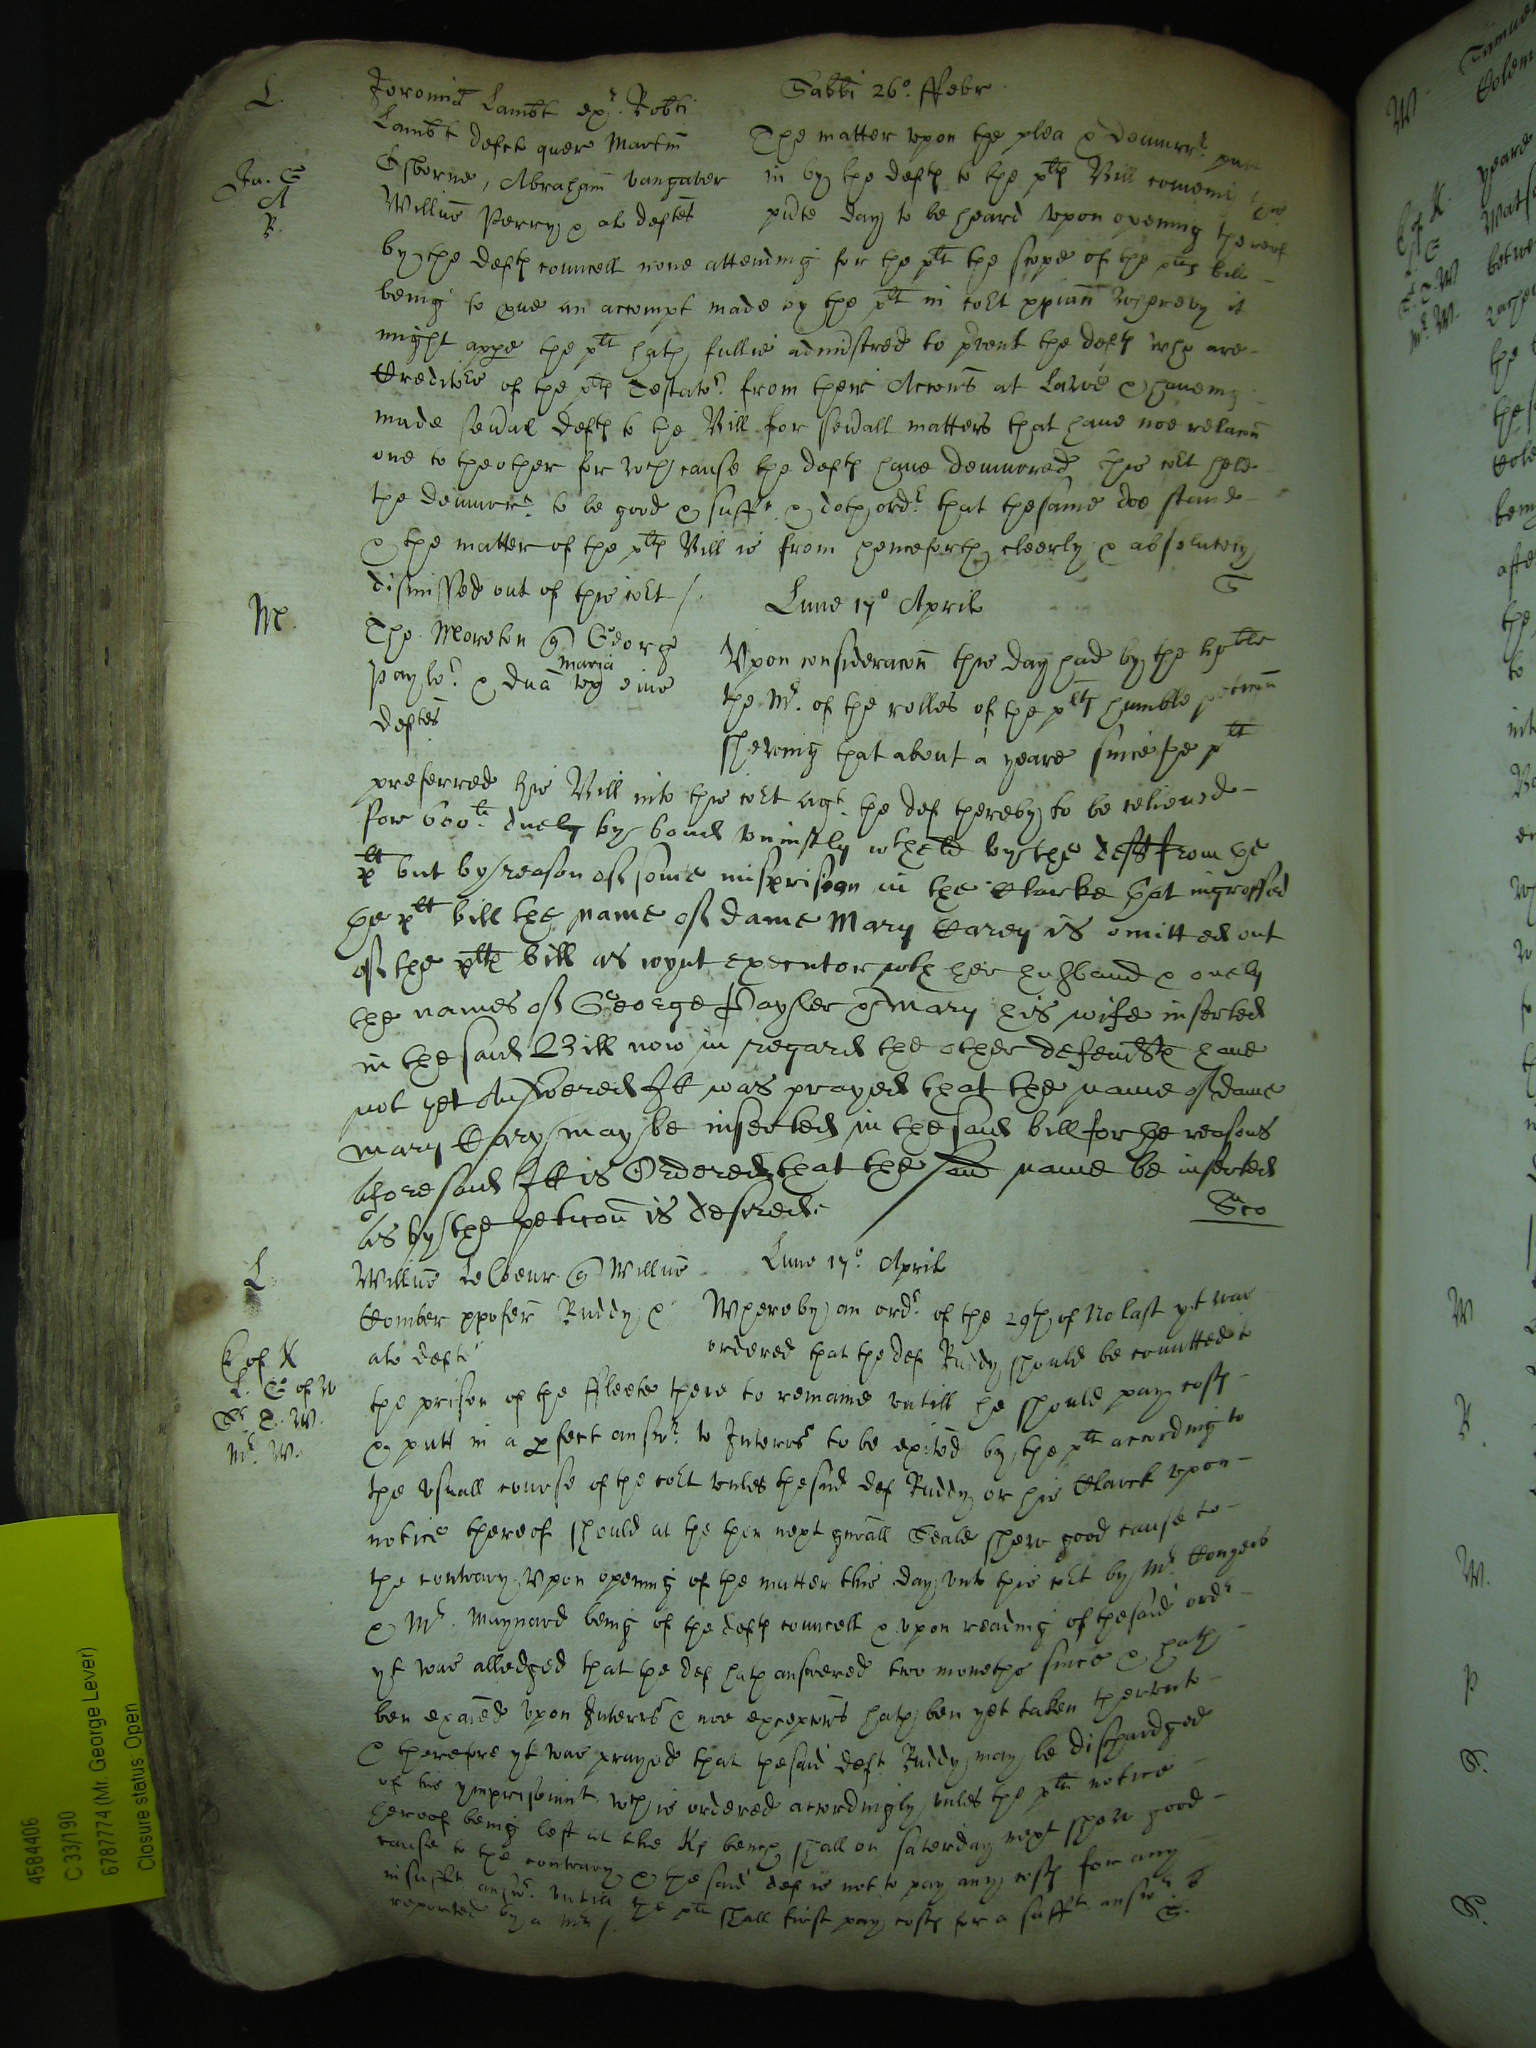 L.
Jeromia Lambt exr. Robti
Sabbi 26o. ffebr.
Lambt defcti quer Martin
Osborne, Abraham vangaver
Willus Perry & al deftes
Ju. C
A
R.
The matter vpon the plea & demurrr. put
in by the defts to the plts Bill comeing this
pnte day to be heard vpon opening thereof
by the defts councell none attending for the plt the scope of the plts bill
being to an accompt made by the plt in colt whereby it
might appe the plt hath fullie admistred to pvent the defts who are
Creditors of the plts Testator. from their Accons at Lawe & haveing
made sevall defts to the Bill for sevall matters that have noe relacon
one to theother for wch cause the defts have demurred this colt held
the demurrr. to be good & sufft. & doth ordr. that thesame doe stand
& the matter of the plts Bill is from henceforth cleerly & absolutely
dismissed out of this colt /.
M.
Lune 17o April
Tho. Moreton George
Paylor. & dna maria vx eius
deftes
Vpon consideracon this day had by the hoble
the Mr. of the rolles of the plts humble peticon
shewing that about a yeare since the plt
preferred his Bill into this colt agt. the def thereby to be relieved
for 600li. duely by bond vniustly wtheld by the deft from the
plt but by reason of some misprision in the Clarke that ingrossed
the plt bill the name of dame Mary Carey is omitted out
of the plts bill as ioynt executor wth her husband & onely
the names of George Payler & Mary his wife inserted
in the said Bill now in regard the other defendts have
not yet Answered It was prayed that the name of dame
mary Cary may be inserted in the said bill for the reasons
aforesaid It is Ordered that the said name be inserted
as by the peticon is desired.
L.
Willus LeCoeur Willus
Lune 17o. April
Comber Ruddy &
als defti
K of K
L. C of W
Sr. T. W.
Mr. W.
Whereby an ordr. of the 29th of No last yt was
ordered that the def Ruddy should be comitted to
the prison of the ffleete there to remaine vntill he should pay costs
& putt in a pfect answr. to Interrs to be exited by the plt according to
the vsuall course of the colt vnles thesaid def Ruddy or his Clarck vpon
notice thereof should at the then next gnall Seale shew good cause to
the contrary. Vpon opening of the matter this day vnto this colt by Mr. Conyers
& Mr. Maynard being of the defts councell & vpon reading of thesaid ordr
yt was alledged that the def hath answered two monethes since & hath
ben exaied vpon Interrs & noe excepcons hath ben yet taken therevnto
& therefore yt was prayed that thesaid deft Ruddy may be dischardged
of his ymprisonmt. wch is ordered accordingly vnles the plt notice
hereof being left at the Ks bench shall on saterday next shew good
cause to the contrary & the said def is not to pay any costs for any
insufft. answr. vntill the plt shall first pay costs for a sufft. answr
reported by a Mr /.
4584406
C 33/190
6787774 (Mr. George Lever)
Closure status: Open